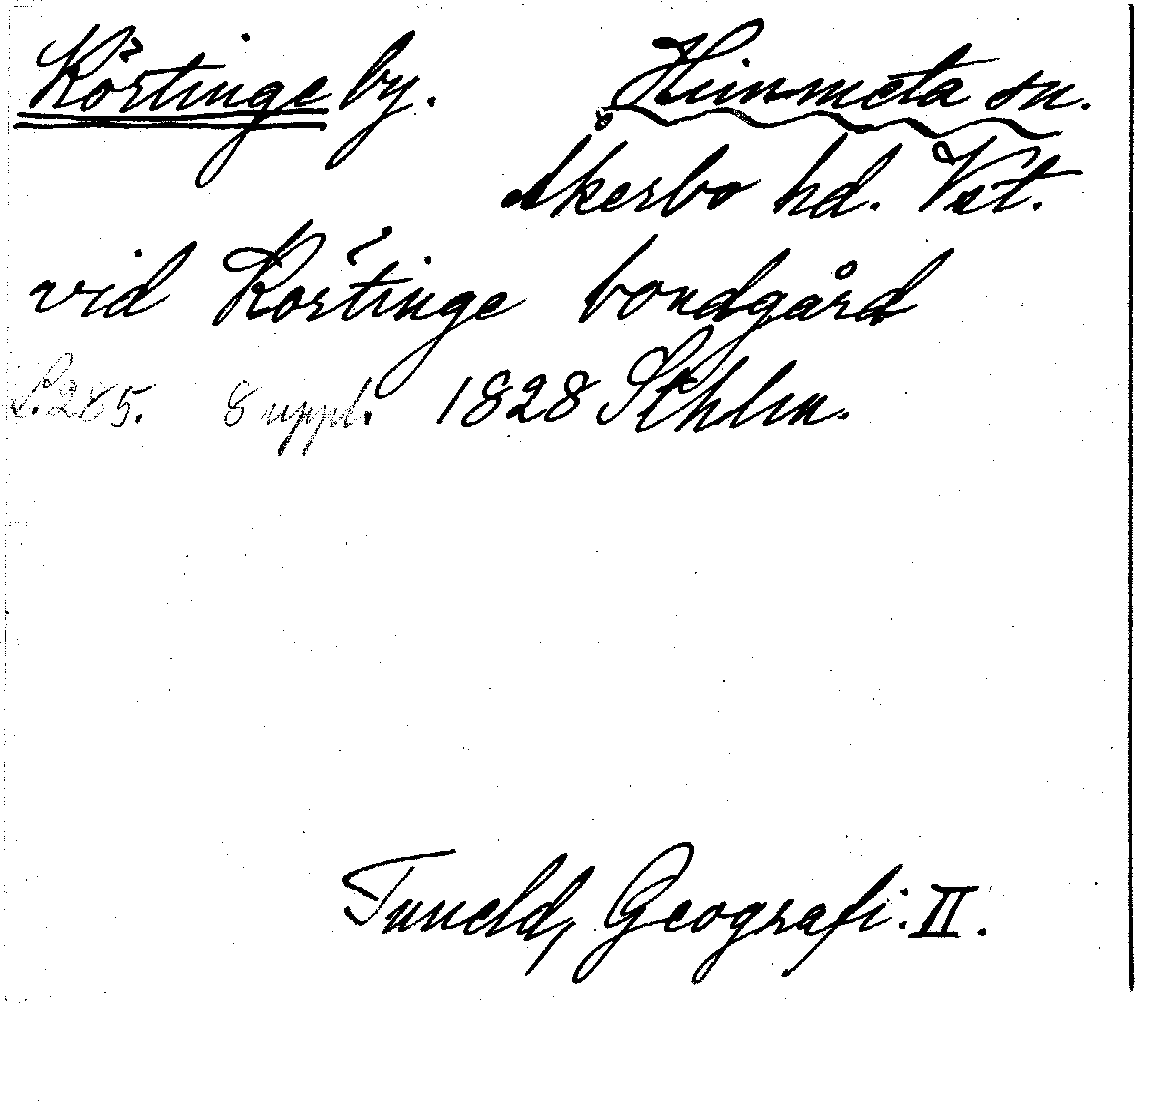 Körtinge by. Himmeta sn.
Åkerbo hd. Vst.
vid Körtinge bondgård
S. 285. 8 uppl. 1828 Sthlm.
Tuneld, Geografi. II.